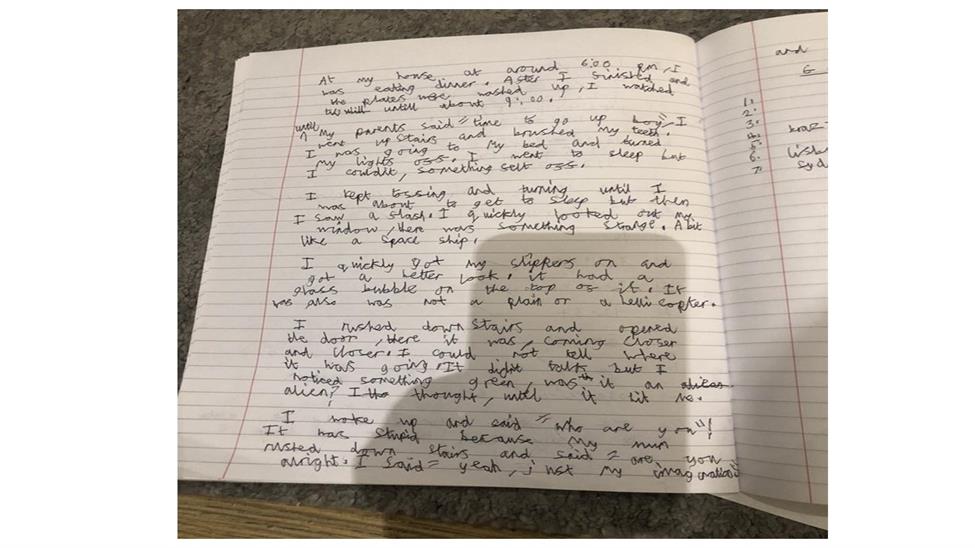 At my house at around 6:00 pm, I
was eating dinner. After I finished and
the plates were washed up, I watched
untill about 9:00.
until my parents said "time to go up boy" I
went up stairs and brushed my teeth.
I was going to my bed and turned
my lights off. I went to sleep but
I couldit, something felt off.
I kept tossing and turning until I
was about to get to sleep but then
I saw a flash. I quickly looked out my
window, there was something strange. A bit
like a space ship.
I quickly got my slippers on and
got a better look. it had a
glass bubble on the top of it. It
was also was not a plain or a helli copter.
I rushed down stairs and opened
the door, there it was, coming closer
and closer. I could not tell where
it was going. It didit talk but I
noticed something green, was it an
alien? I thought, until it hit me.
I woke up and said "who are you"!
It was stupid because my mum
rushed down stairs and said "are you
alright. I said "yeah, just my imagination"
and
6
1:
2:
3:
6:
7: